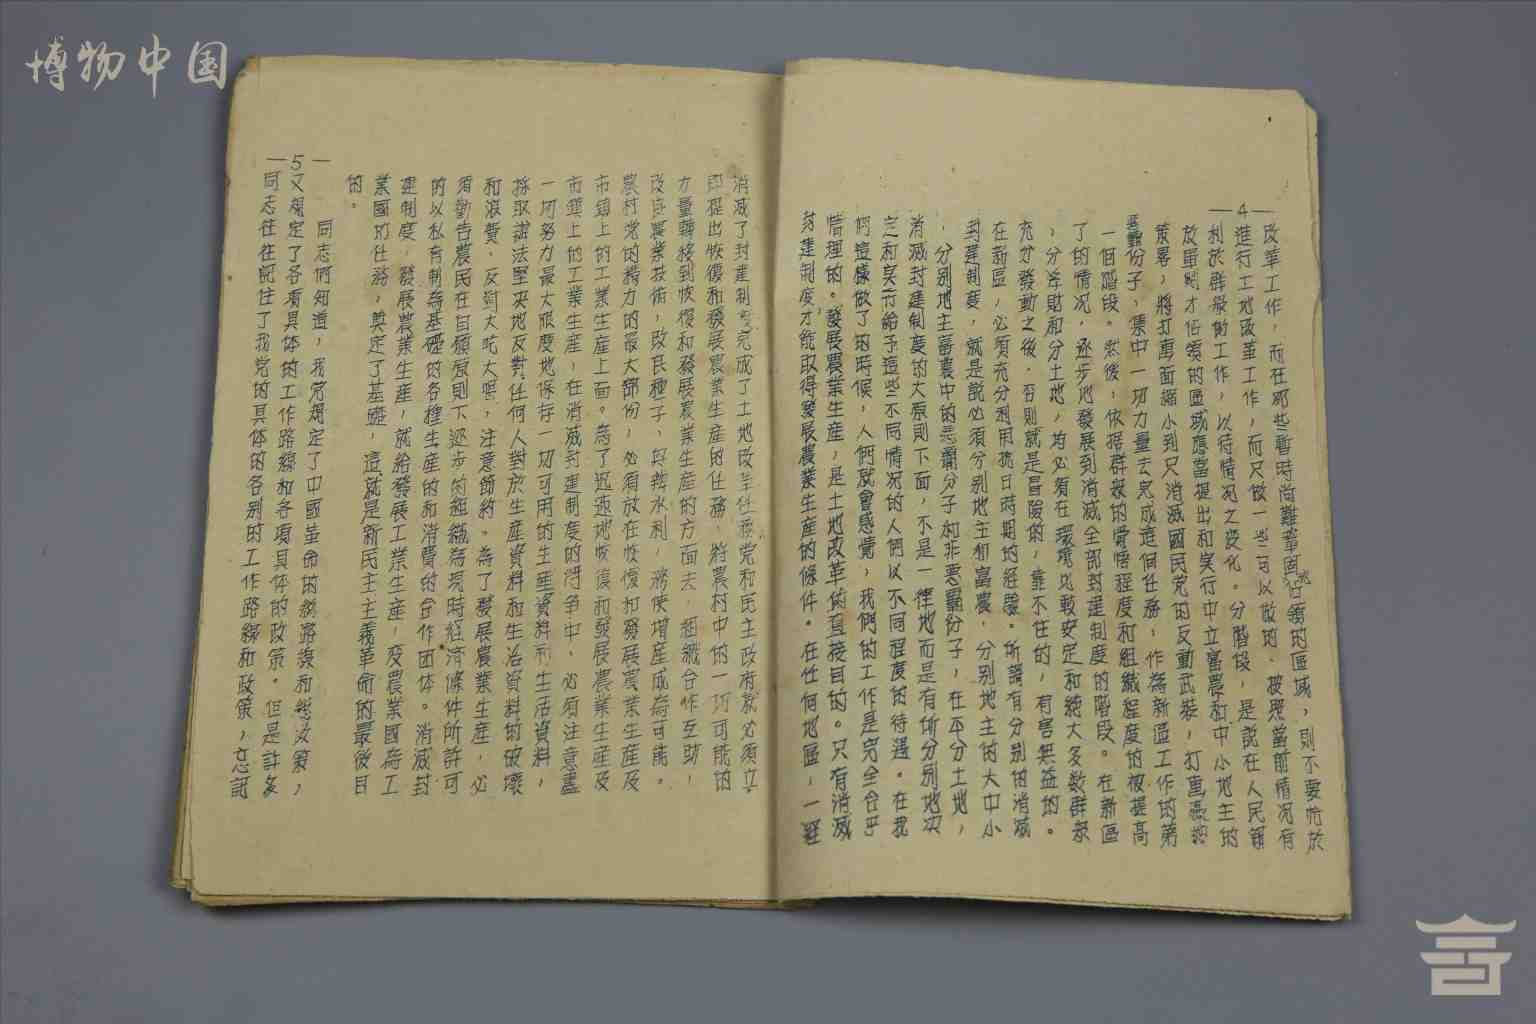 博物中国
—4—
改革工作，而在那些暫時尚難鞏固地佔領的區域，則不要忙於
進行土地改革工作，而只做一些可以做的，按照當前情况有
利於群衆的工作，以待情况之变化。分階段，是説在人民解
放軍剛才佔領的區域應當提出和實行中立富農和中小地主的
策畧，將打擊面縮小到只消滅國民党的反動武裝，打擊
惡霸份子，集中一切力量去完成這個任務，作為新區工作的第
一個階段。然後，依据群衆的覺悟程度和組織程度的被提高
了的情况，逐步地發展到消滅全部封建制度的階段。在新區
，分浮財和分土地，均必須在環境比較安定和絶大多数群衆
充分發動之後，否則就是冒險的，靠不住的，有害無益的。
在新區，必須充分利用抗日時期的經驗。所謂有分別的消滅
封建制度，就是説必須分別地主和富農，分別地主的大中小
，分別地主富農中的惡霸分子和非惡霸份子，在平分土地，
消滅封建制度的大原則下面，不是一律地而是有所分別地决
定和實行給予這些不同情况的人們以不同程度的待遇。在我
們這樣做了的時候，人們就會感覺，我們的工作是完全合乎
情理的。發展農業生産，是土地改革的直接目的。只有消滅
封建制度才能取得發展農業生産的條件。在任何地區，一經
消滅了封建制度完成了土地改革任務党和民主政府就必須立
即提出恢復和發展農業生産的任務，將農村中的一切可能的
力量轉移到恢復和發展農業生産的方面去，組織合作互助，
改良農業技術，改良種子，興辦水利，務使增産成為可能。
農村党的精力的最大部份，必須放在恢復和發展農業生産及
市鎮上的工業生産上面。為了迅速地恢復和發展農業生産及
市鎮上的工業生産，在消滅封建制度的鬥争中，必須注意盡
一切努力最大限度地保存一切可用的生産資料和生活資料，
採取辦法堅决地反對任何人對於生産資料和生活資料的破壞
和浪費，反對大吃大喝，注意節約。為了發展農業生産，必
須勸告農民在自願原則下逐步的組織為現時經濟條件所許可
的以私有制為基礎的各種生産的和消費的合作团体。消滅封
建制度，發展農業生産，就給發展工業生産，变農業國為工
業國的任務，奠定了基礎，這就是新民主主義革命的最後目
的。
同志們知道，我党規定了中國革命的總路綫和總政策，
—5—
又規定了各項具体的工作路綫和各項具体的政策。但是許多
同志往往記住了我党的具体的各別的工作路綫和政策，忘記